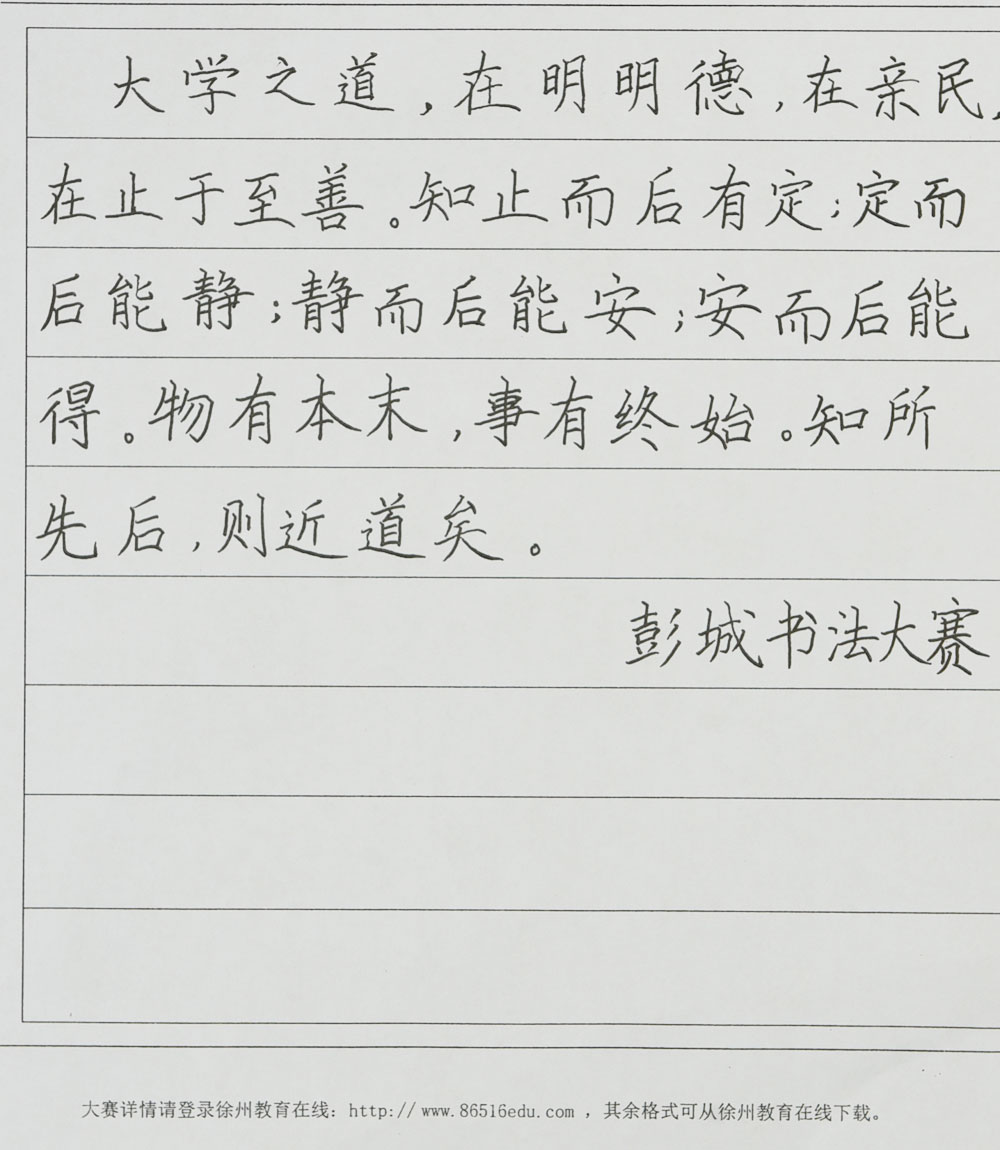 大学之道,在明明德,在亲民,
在止于至善。知止而后有定;定而
后能静;静而后能安;安而后能
得。物有本末,事有终始。知所
先后,则近道矣。
彭城书法大赛
大赛详情请登录徐州教育在线: http://www.86516edu.com ,其余格式可从徐州教育在线下载。